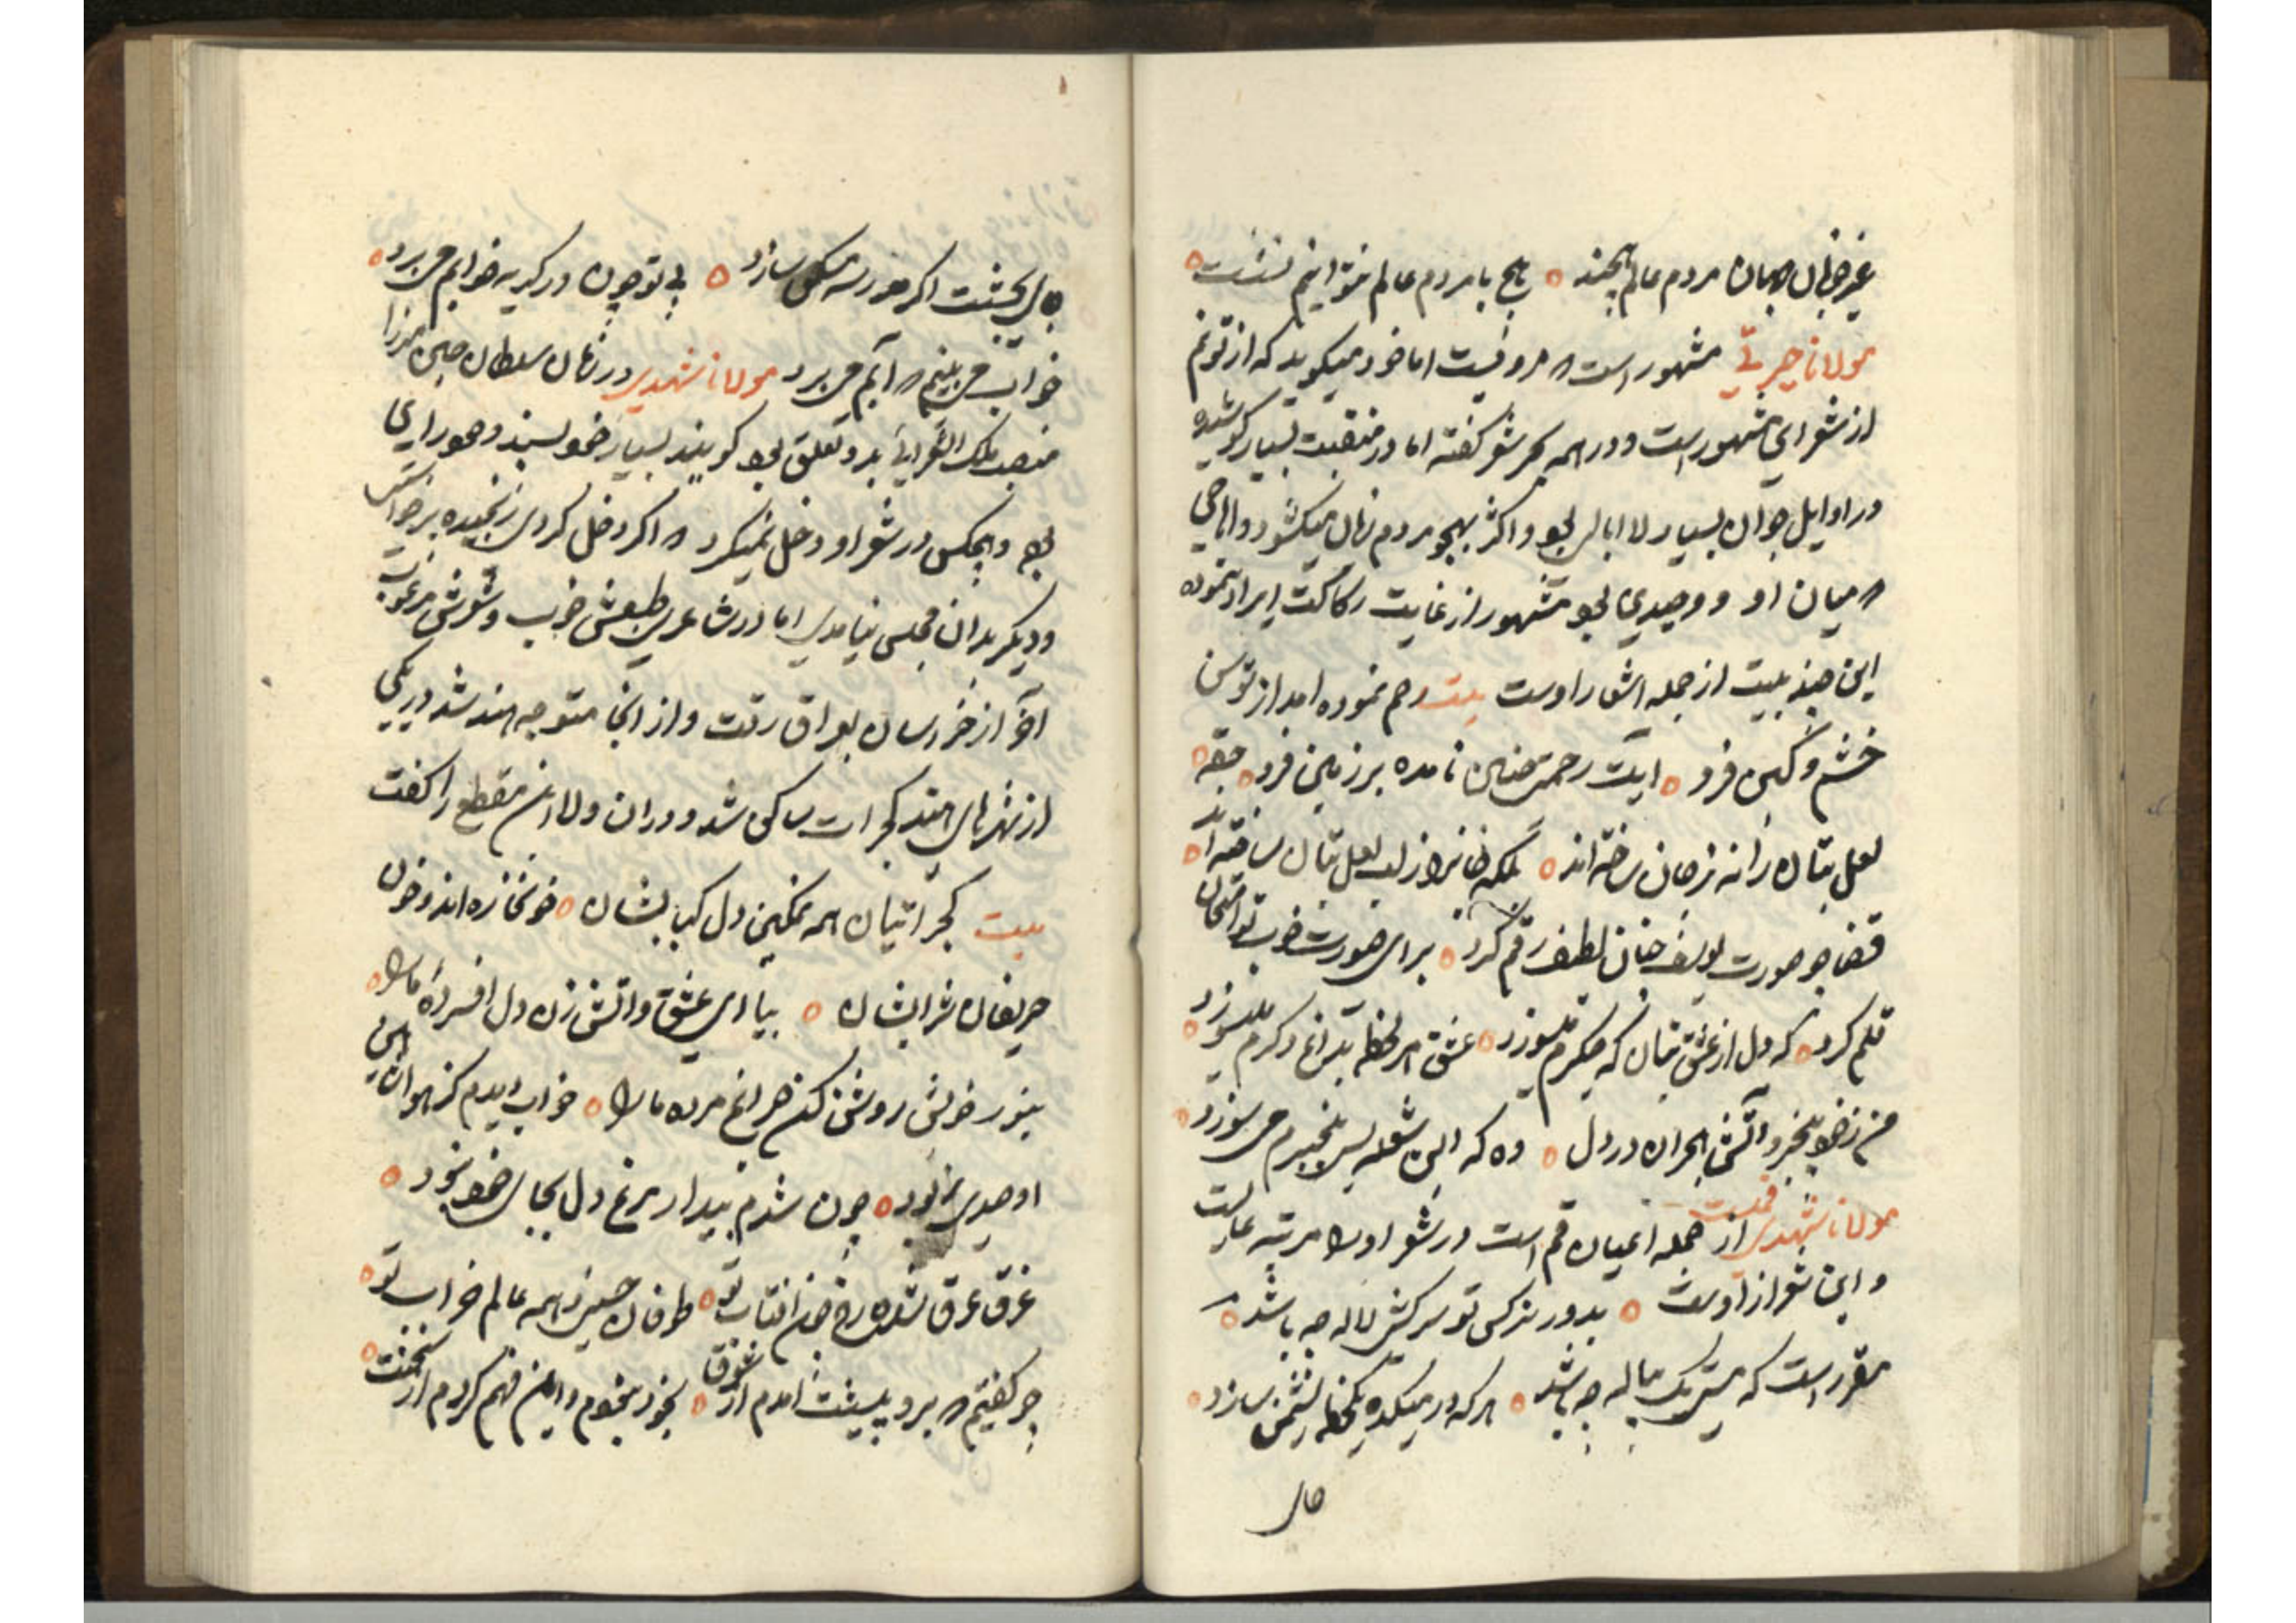 مردم عالم همند ه هیچ با مردم عالم نتوانیم نشست ه
مولانا حیرتی مشهور است اما خود میگوید که از تونم
از شعرای مشهور است و در همه بحر شعر گفته اما در منقبت بسیار کوشیده
در اوایل جوانی بسیار لاابالی بود و اکثر بهجو مردم زبان میکشود و اهاجی
میان او و وحیدی بود مشهور از غایت رکاکت ایراد ننموده
این چند بیت از جمله اشعار اوست بیت رحم نموده امد از توسن
خشم و کین فرو ه ایت رحمتی چنین نامده بر زمین فرو ه حقه
لعل بتان را نه ز جان ساخته اند ه بلکه جانرا ز لب لعل بتان ساخته اند ه
قضا چو صورت یوسف چنان لطیف رقم کرد ه برای صورت خوب تو امتحان
قلم کرد ه که دل از عشق بتان که جکرم میسوزد ه عشق هر لحظه بداغ دکرم میسوزد ه
من ز خود بیخبر و آتش هجران در دل ه وه که این شعله بس بیخبرم می سوزد ه
مولانا شهیدی قمیست از جمله اعیان قم است در شعر او را مرتبه عالیست
و این شعر از اوست ه بدور نرکس تو سرکش لاله چه باشد ه
مقرر است که مستی یک پیاله چه باشد ه هرکه در میکده یکلحظه نشیمن سازد ه
جای
جای بهشت اکر حور مسکن سازد ه بی تو چون در کریه خوابم می برد ه
خواب می بینم آبم می برد مولانا شهیدی در زمان سلطان حسین میرزا
منصب ملک الشعرائی بدو تعلق بود کویند بسیار خود پسند و خود رای
بود و هیچکس در شعر او دخل نمیکرد اکر دخل کردی رنجیده برخواستی
و دیکر بدان مجلس نیامدی اما در شاعری طبعش خوب و شعرش مرغوب
آخر از خراسان بعراق رفت و از انجا متوجه هند شد در یکی
از شهرهای هند کجرات ساکن شد و در ان ولا این مقطع را کفت
بیت کجراتیان همه نمکین دل کبابشان ه خونخاره اند و خون
حریفان شرابشان ه بیا ای عشق و آتش زن دل افسرده ما را ه
بنور خویش روشن کن چراغ مرده ما را ه خواب دیدم کز هوا
او صیدی ربود ه چون شدم بیدار مرغ دل بجای خود نبود ه
غرق عرق شده رخ چون افتاب تو ه طوفان حسن خیز و همه عالم خراب تو ه
چو کفتیم برو پیشت امدم از شوق ه بخود نبودم و این فهم کردم از سخنت ه